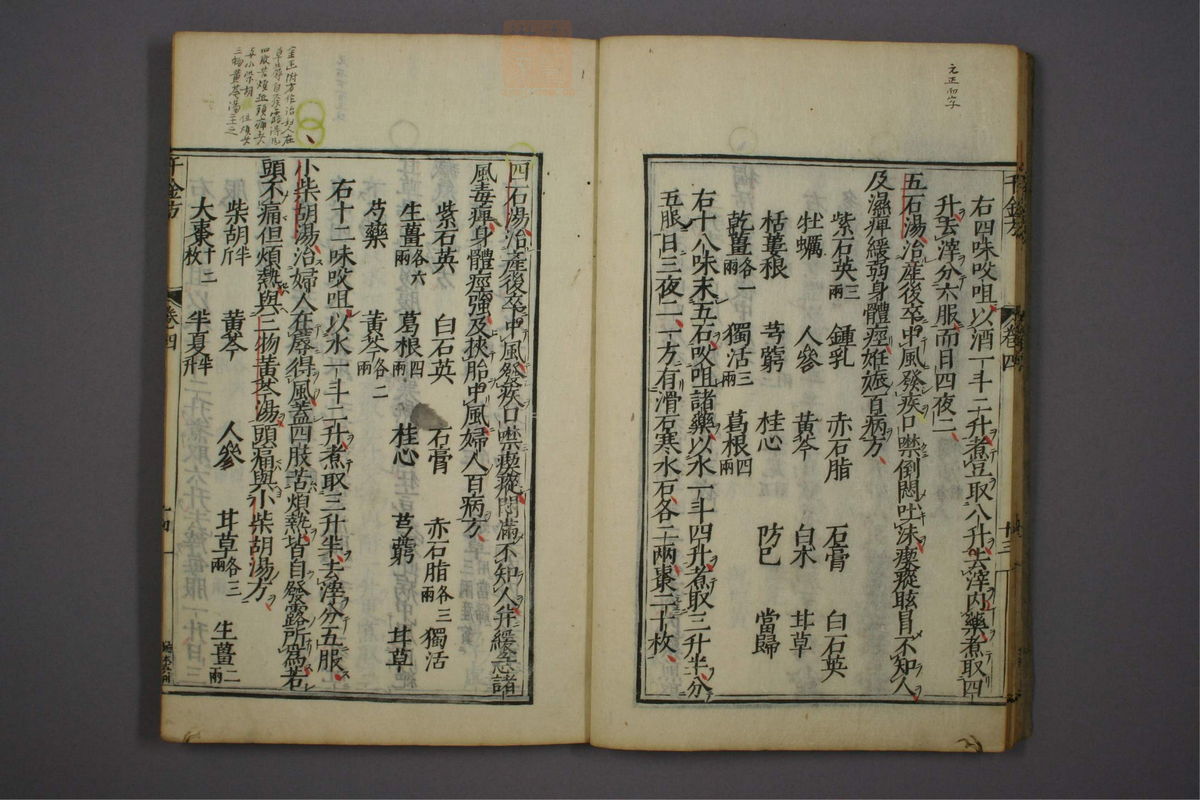 元正而字
右四味㕮咀以酒一斗二升煮豆取八升去滓内藥煮取四
升去滓分六服而日四夜二
五石湯治產後卒中風發疾口噤倒悶吐沫瘈瘲眩冒不知人
及濕痺緩弱身體痙姙娠百病方
紫石英三兩 鍾乳 赤石脂 石膏 白石英
牡蠣 人參 黃芩 白朮 甘草
栝蔞根 芎藭 桂心 防巳 當歸
乾薑各二兩 獨活三兩 葛根四兩
右十八味末五石㕮咀諸藥以水一斗四升煮取三升半分
五服日三夜二一方有滑石寒水石各二兩棗二十枚
千金方 卷四 十三
四石湯治產後卒中風發疾口噤瘈瘲悶滿不知人并緩急諸
風毒痺身體痙強及挾胎中風婦人百病方
紫石英 白石英 石膏 赤石脂各三兩 獨活
生薑各六兩 葛根四兩 桂心 芎藭 甘草
芍藥 黃芩各二兩
右十二味㕮咀以水一斗二升煮取三升半去滓分五服
小柴胡湯治婦人在蓐得風蓋四肢苦煩熱皆自發露所為若
頭不痛但煩熱與三物黃芩湯頭痛與小柴胡湯方
柴胡半斤 黃芩 人參 甘草各三兩 生薑二兩
大棗十二枚 半夏半升
千金方 卷四